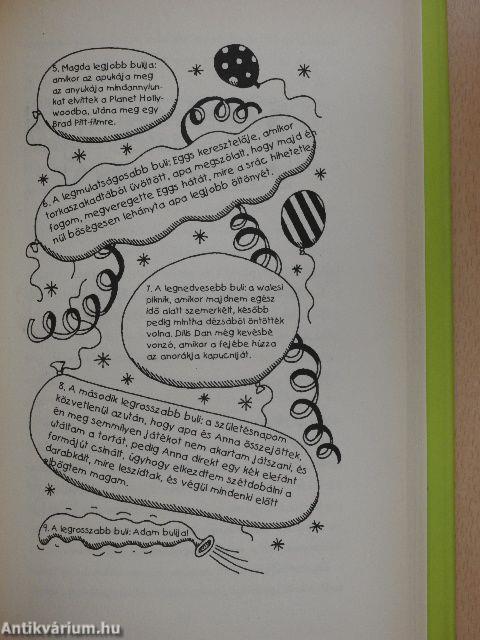 5. Magda legjobb bulija:
amikor az apukája meg
az anyukája mindannyiun-
kat elvittek a Planet Holly-
woodba, utána meg egy
Brad Pitt-filmre.
6. A legmulatságosabb buli: Eggs keresztelője, amikor
torkaszakadtából üvöltött, apa megszólalt, hogy majd én
fogom, megveregette Eggs hátát, mire a srác hihetetle-
nül bőségesen lehányta apa legjobb öltönyét.
7. A legnedvesebb buli: a walesi
piknik, amikor majdnem egész
idő alatt szemerkélt, később
pedig mintha dézsából öntötték
volna. Dilis Dan még kevésbé
vonzó, amikor a fejébe húzza
az anorákja kapucniját.
8. A második legrosszabb buli: a születésnapom
közvetlenül azután, hogy apa és Anna összejöttek,
én meg semmilyen játékot nem akartam játszani, és
utáltam a tortát, pedig Anna direkt egy kék elefánt
formájút csinált, úgyhogy elkezdtem szétdobálni a
darabkáit, mire leszidtak, és végül mindenki előtt
elbőgtem magam.
9. A legrosszabb buli: Adam bulija!
Antikvárium.hu